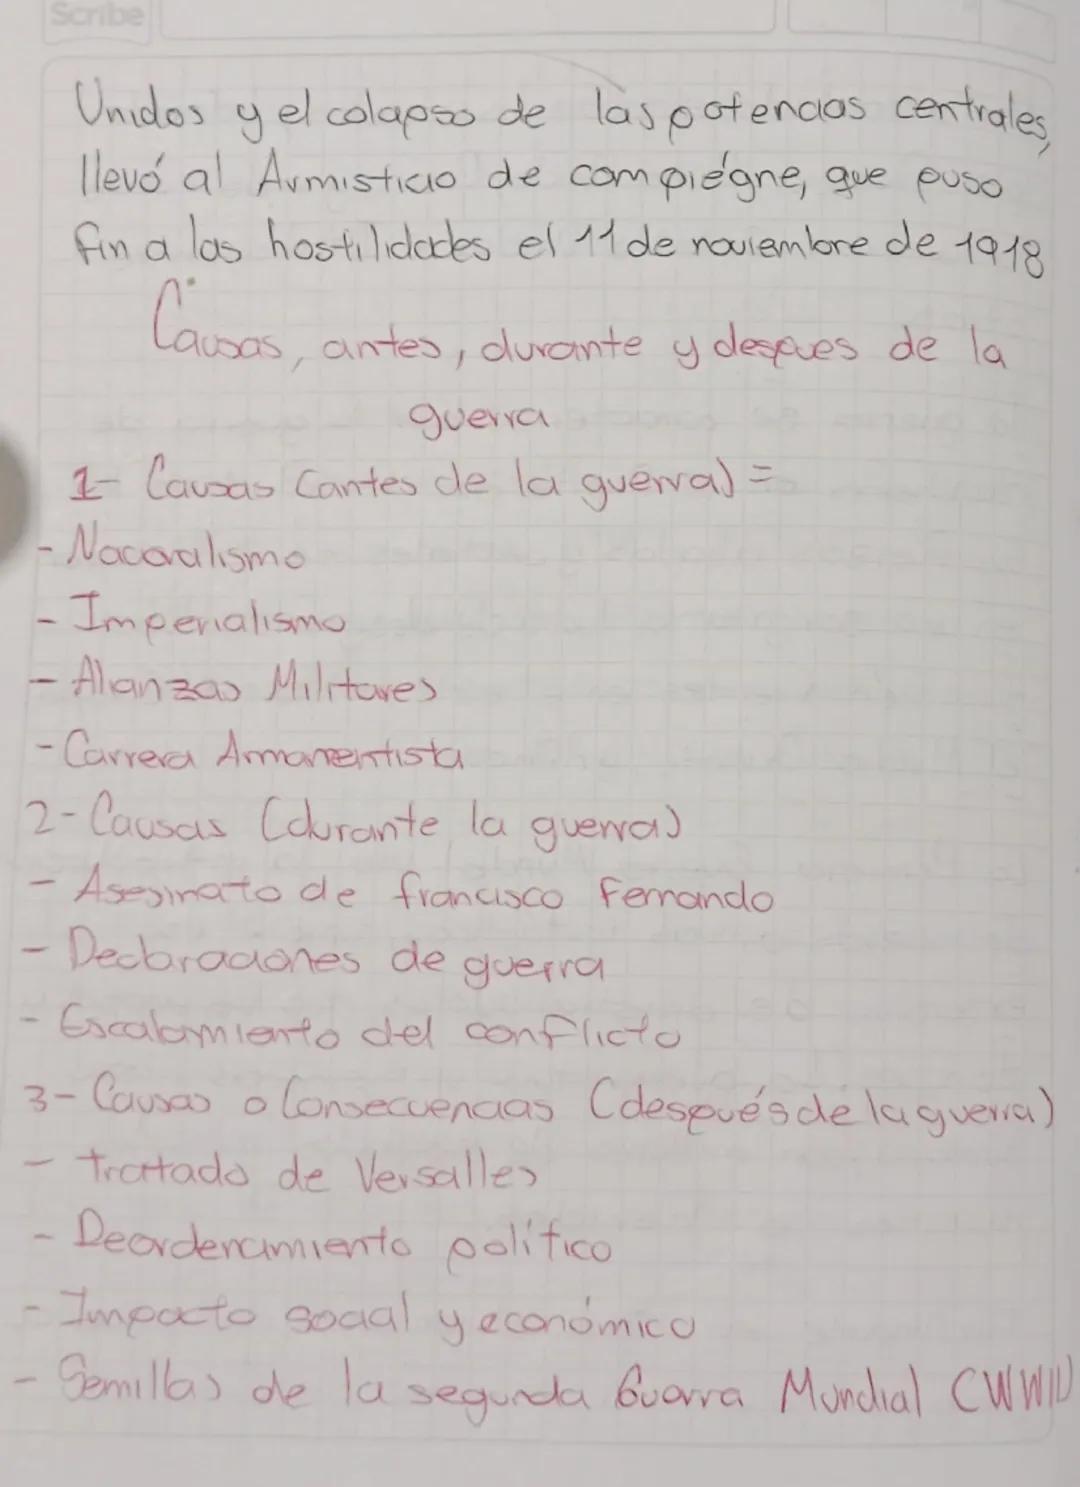 Scribe
Unidos y el colapso de las potencias centrales,
llevó al Armisticio de compiégne, que puso
fin a las hostilidades el 11 de noviembre de 1918
Causas, antes, durante y despues de la
guerra
1- Causas (antes de la guerra) =
- Nacovalismo
- Imperialismo
- Alianzas Militares
- Carrera Armamentista
2- Causas (durante la guerra)
- Asesinato de francisco Fernando
- Declaraciones de guerra
- Escalamiento del conflicto
3- Causas o Consecuencias (después de la guerra)
- tratado de Versalles
- Deordenamiento político
- Impacto social y económico
- Semillas de la segunda Guerra Mundial (WWII)